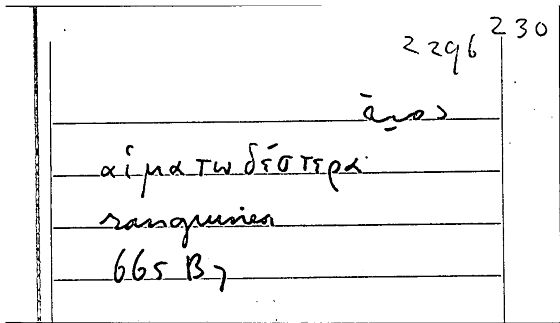 2296 230
αἱματωδέστερα
sanguinea
665 B 7